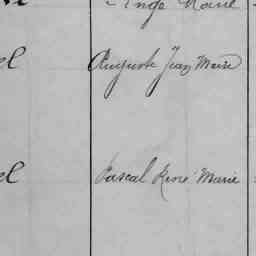 Ange Marie
Auguste Jean Marie
Pascal René Marie